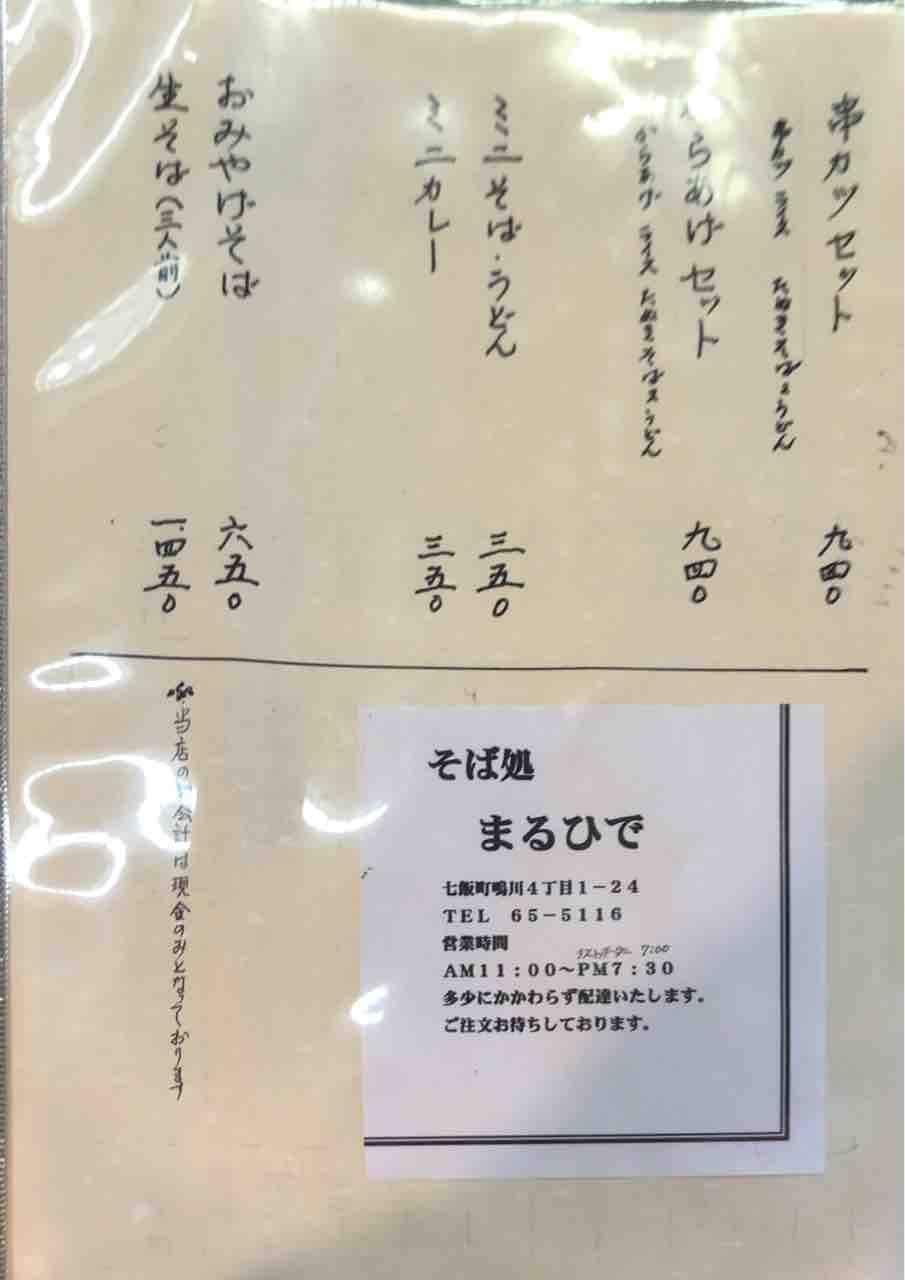 串カツセット
串カツ ライス たぬきそば又うどん
九四〇
からあげセット
からあげ ライス たぬきそば又うどん
九四〇
ミニそば・うどん
三五〇
ミニカレー
三五〇
おみやげそば
六五〇
生そば(三人前)
一.四五〇
当店のお会計は現金のみとなっております
そば処
まるひで
七飯町鳴川4丁目1－24
TEL 65－5116
営業時間
ラストオーダー 7:00
AM11:00～PM7:30
多少にかかわらず配達いたします。
ご注文お待ちしております。